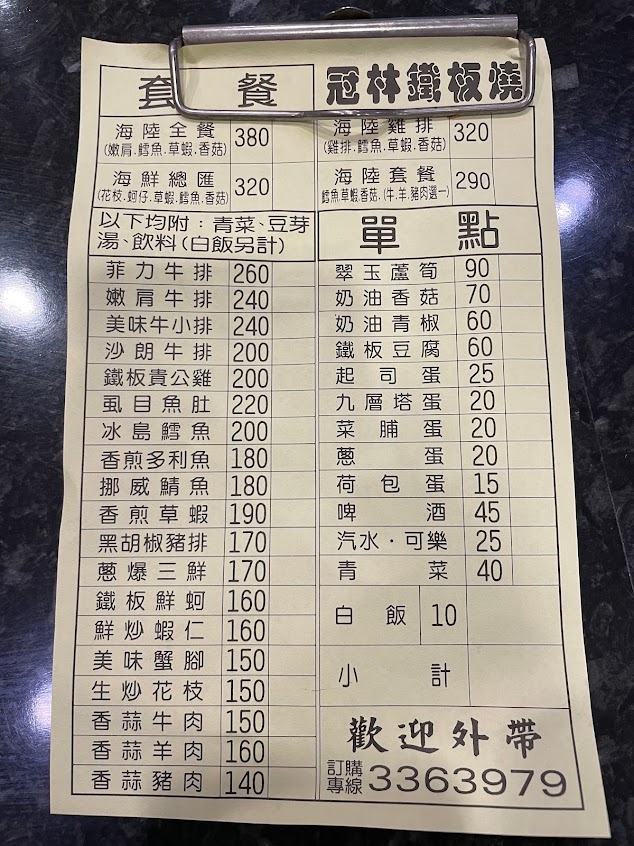 套餐
冠林鐵板燒
海陸全餐 380
(嫩肩.鱈魚.草蝦.香菇)
海陸雞排 320
(雞排.鱈魚.草蝦.香菇)
海鮮總匯 320
(花枝.蚵仔.草蝦.鱈魚.香菇)
海陸套餐 290
鱈魚.草蝦.香菇.(牛.羊.豬肉選一)
以下均附：青菜、豆芽
湯、飲料(白飯另計)
菲力牛排 260
嫩肩牛排 240
美味牛小排 240
沙朗牛排 200
鐵板貴公雞 200
虱目魚肚 220
冰島鱈魚 200
香煎多利魚 180
挪威鯖魚 180
香煎草蝦 190
黑胡椒豬排 170
蔥爆三鮮 170
鐵板鮮蚵 160
鮮炒蝦仁 160
美味蟹腳 150
生炒花枝 150
香蒜牛肉 150
香蒜羊肉 160
香蒜豬肉 140
單點
翠玉蘆筍 90
奶油香菇 70
奶油青椒 60
鐵板豆腐 60
起司蛋 25
九層塔蛋 20
菜脯蛋 20
蔥蛋 20
荷包蛋 15
啤酒 45
汽水．可樂 25
青菜 40
白飯 10
小計
歡迎外帶
訂購專線 3363979